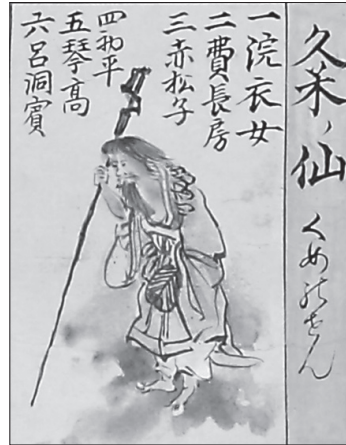 久米ノ仙
くめのせん
一浣衣女
二費長房
三赤松子
四初平
五琴高
六呂洞賓